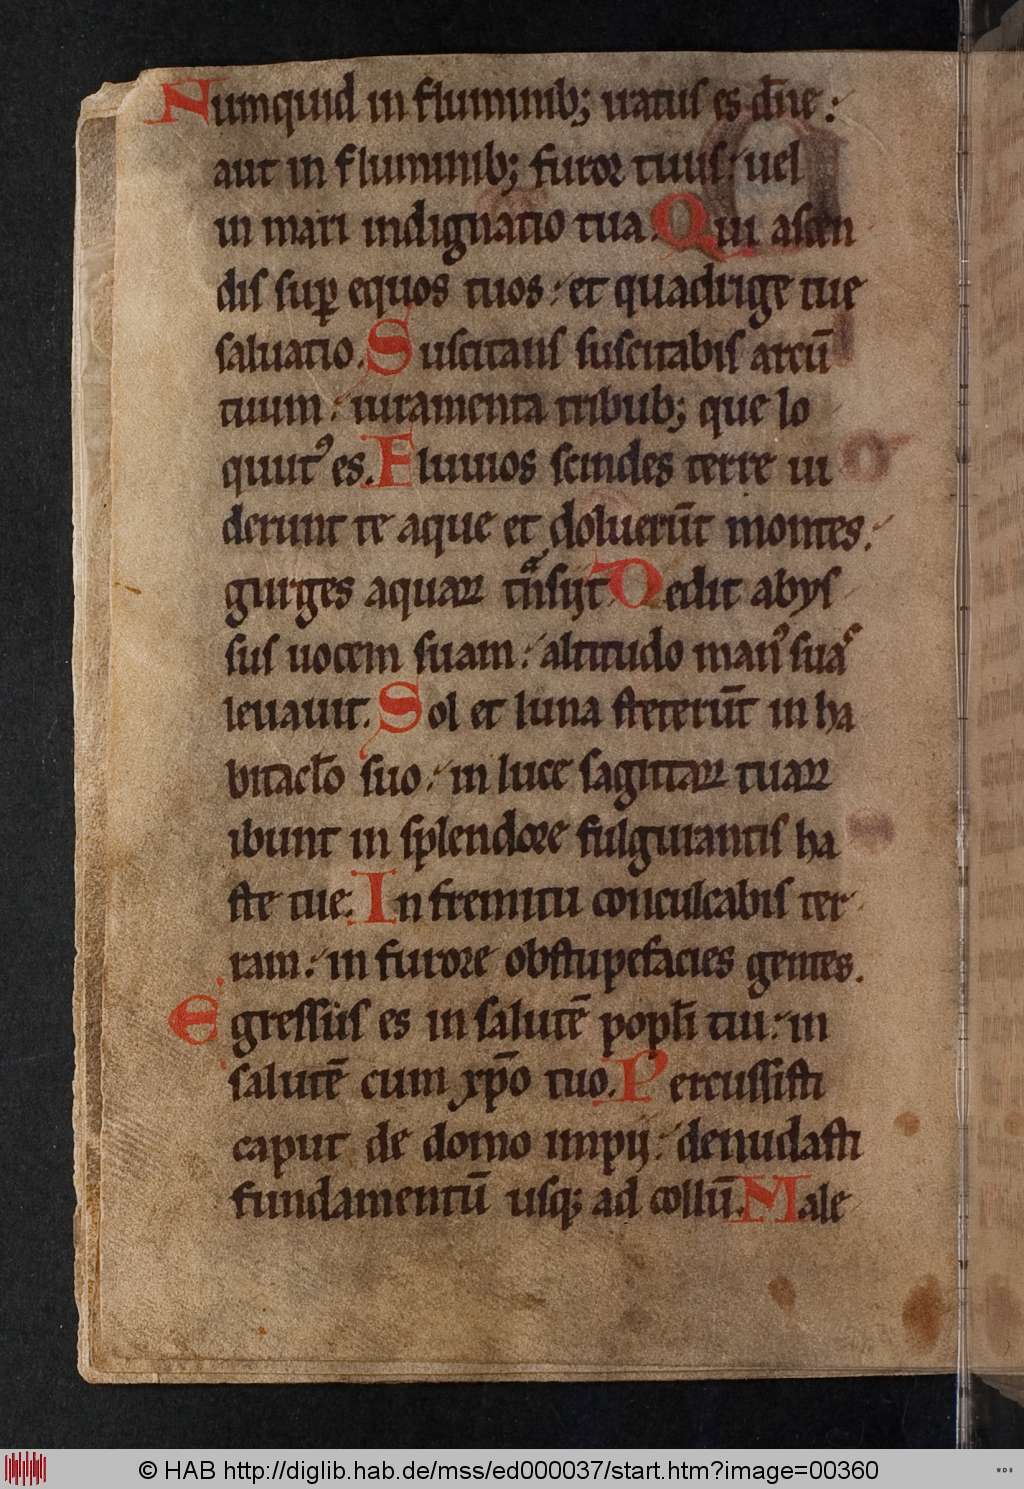 Numquid in fluminib; iratus es dn̄e :
aut in fluminib; furor tuus : uel
in mari indignatio tua. Qui ascen
dis sup̄ equos tuos : et quadrige tue
saluatio. Suscitans suscitabis arcū
tuum : iuramenta tribub; que lo
quut᾽ es. Fluuios scindes terre ui
derunt te aque et doluerūt montes :
gurges aquaꝝ tᵃnsijt. Dedit abys
sus uocem suam : altitudo man᾽ suaˢ
leuauit. Sol et luna steterūt in ha
bitacl̄o suo : in luce sagittaꝝ tuaꝝ
ibunt in splendore fulgurantis ha
ste tue. In fremitu conculcabis ter
ram : in furore obstupefacies gentes.
Egressus es in salutē popl̄i tui : in
salutē cum xp̄o tuo. Percussisti
caput de domo impij : denudasti
fundamentū usq; ad collū. Male
© HAB http://diglib.hab.de/mss/ed000037/start.htm?image=00360